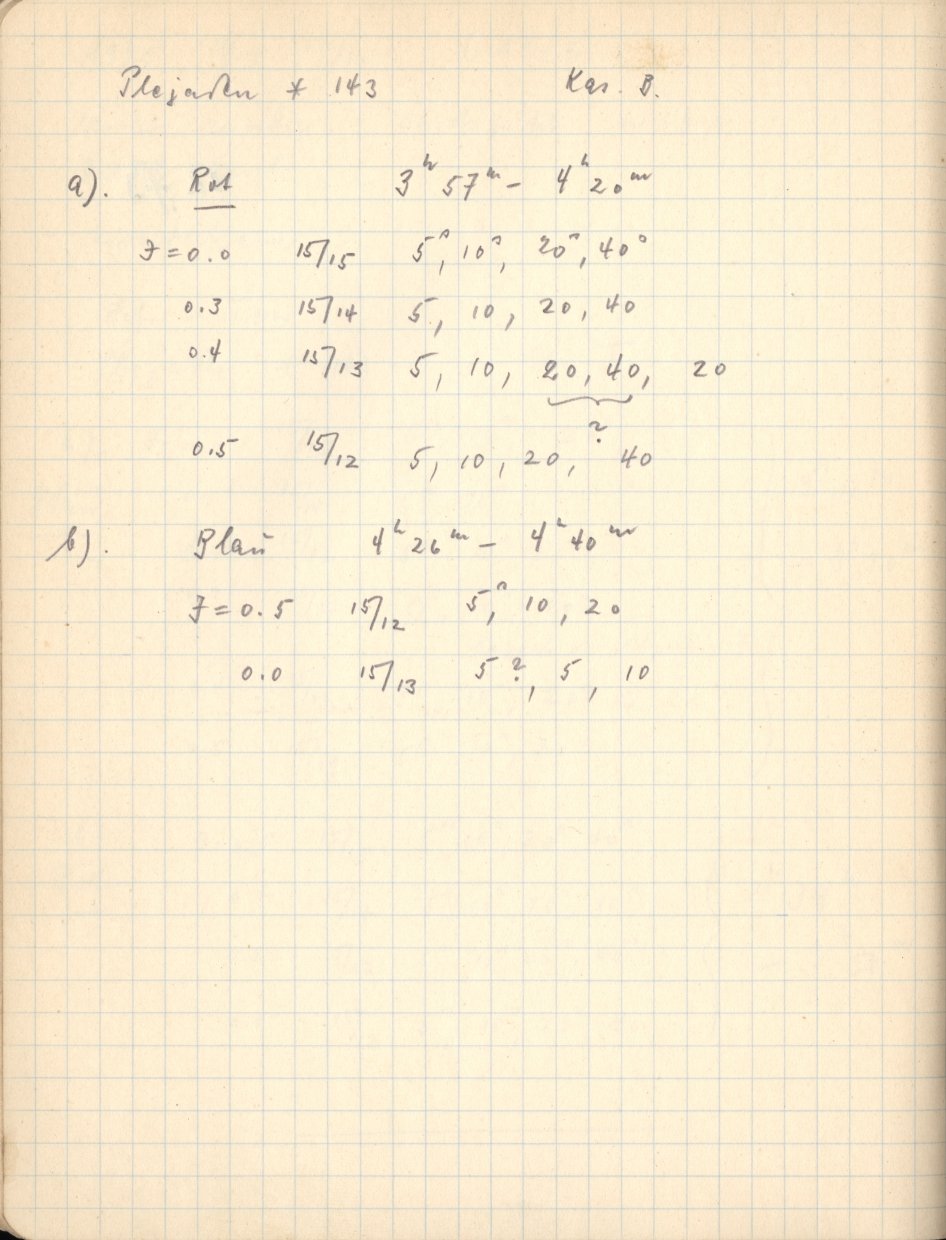 Plejaden * 143 Kas. B.
a). Rot 3ʰ 57ᵐ – 4ʰ 20ᵐ
J = 0.0 15/15 5ˢ, 10ˢ, 20ˢ, 40ˢ
0.3 15/14 5, 10, 20, 40
0.4 15/13 5, 10, 20, 40, 20
?
0.5 15/12 5, 10, 20, 40
b). Blau 4ʰ 26ᵐ – 4ʰ 40ᵐ
J = 0.5 15/12 5ˢ, 10, 20
0.0 15/13 5 ?, 5, 10